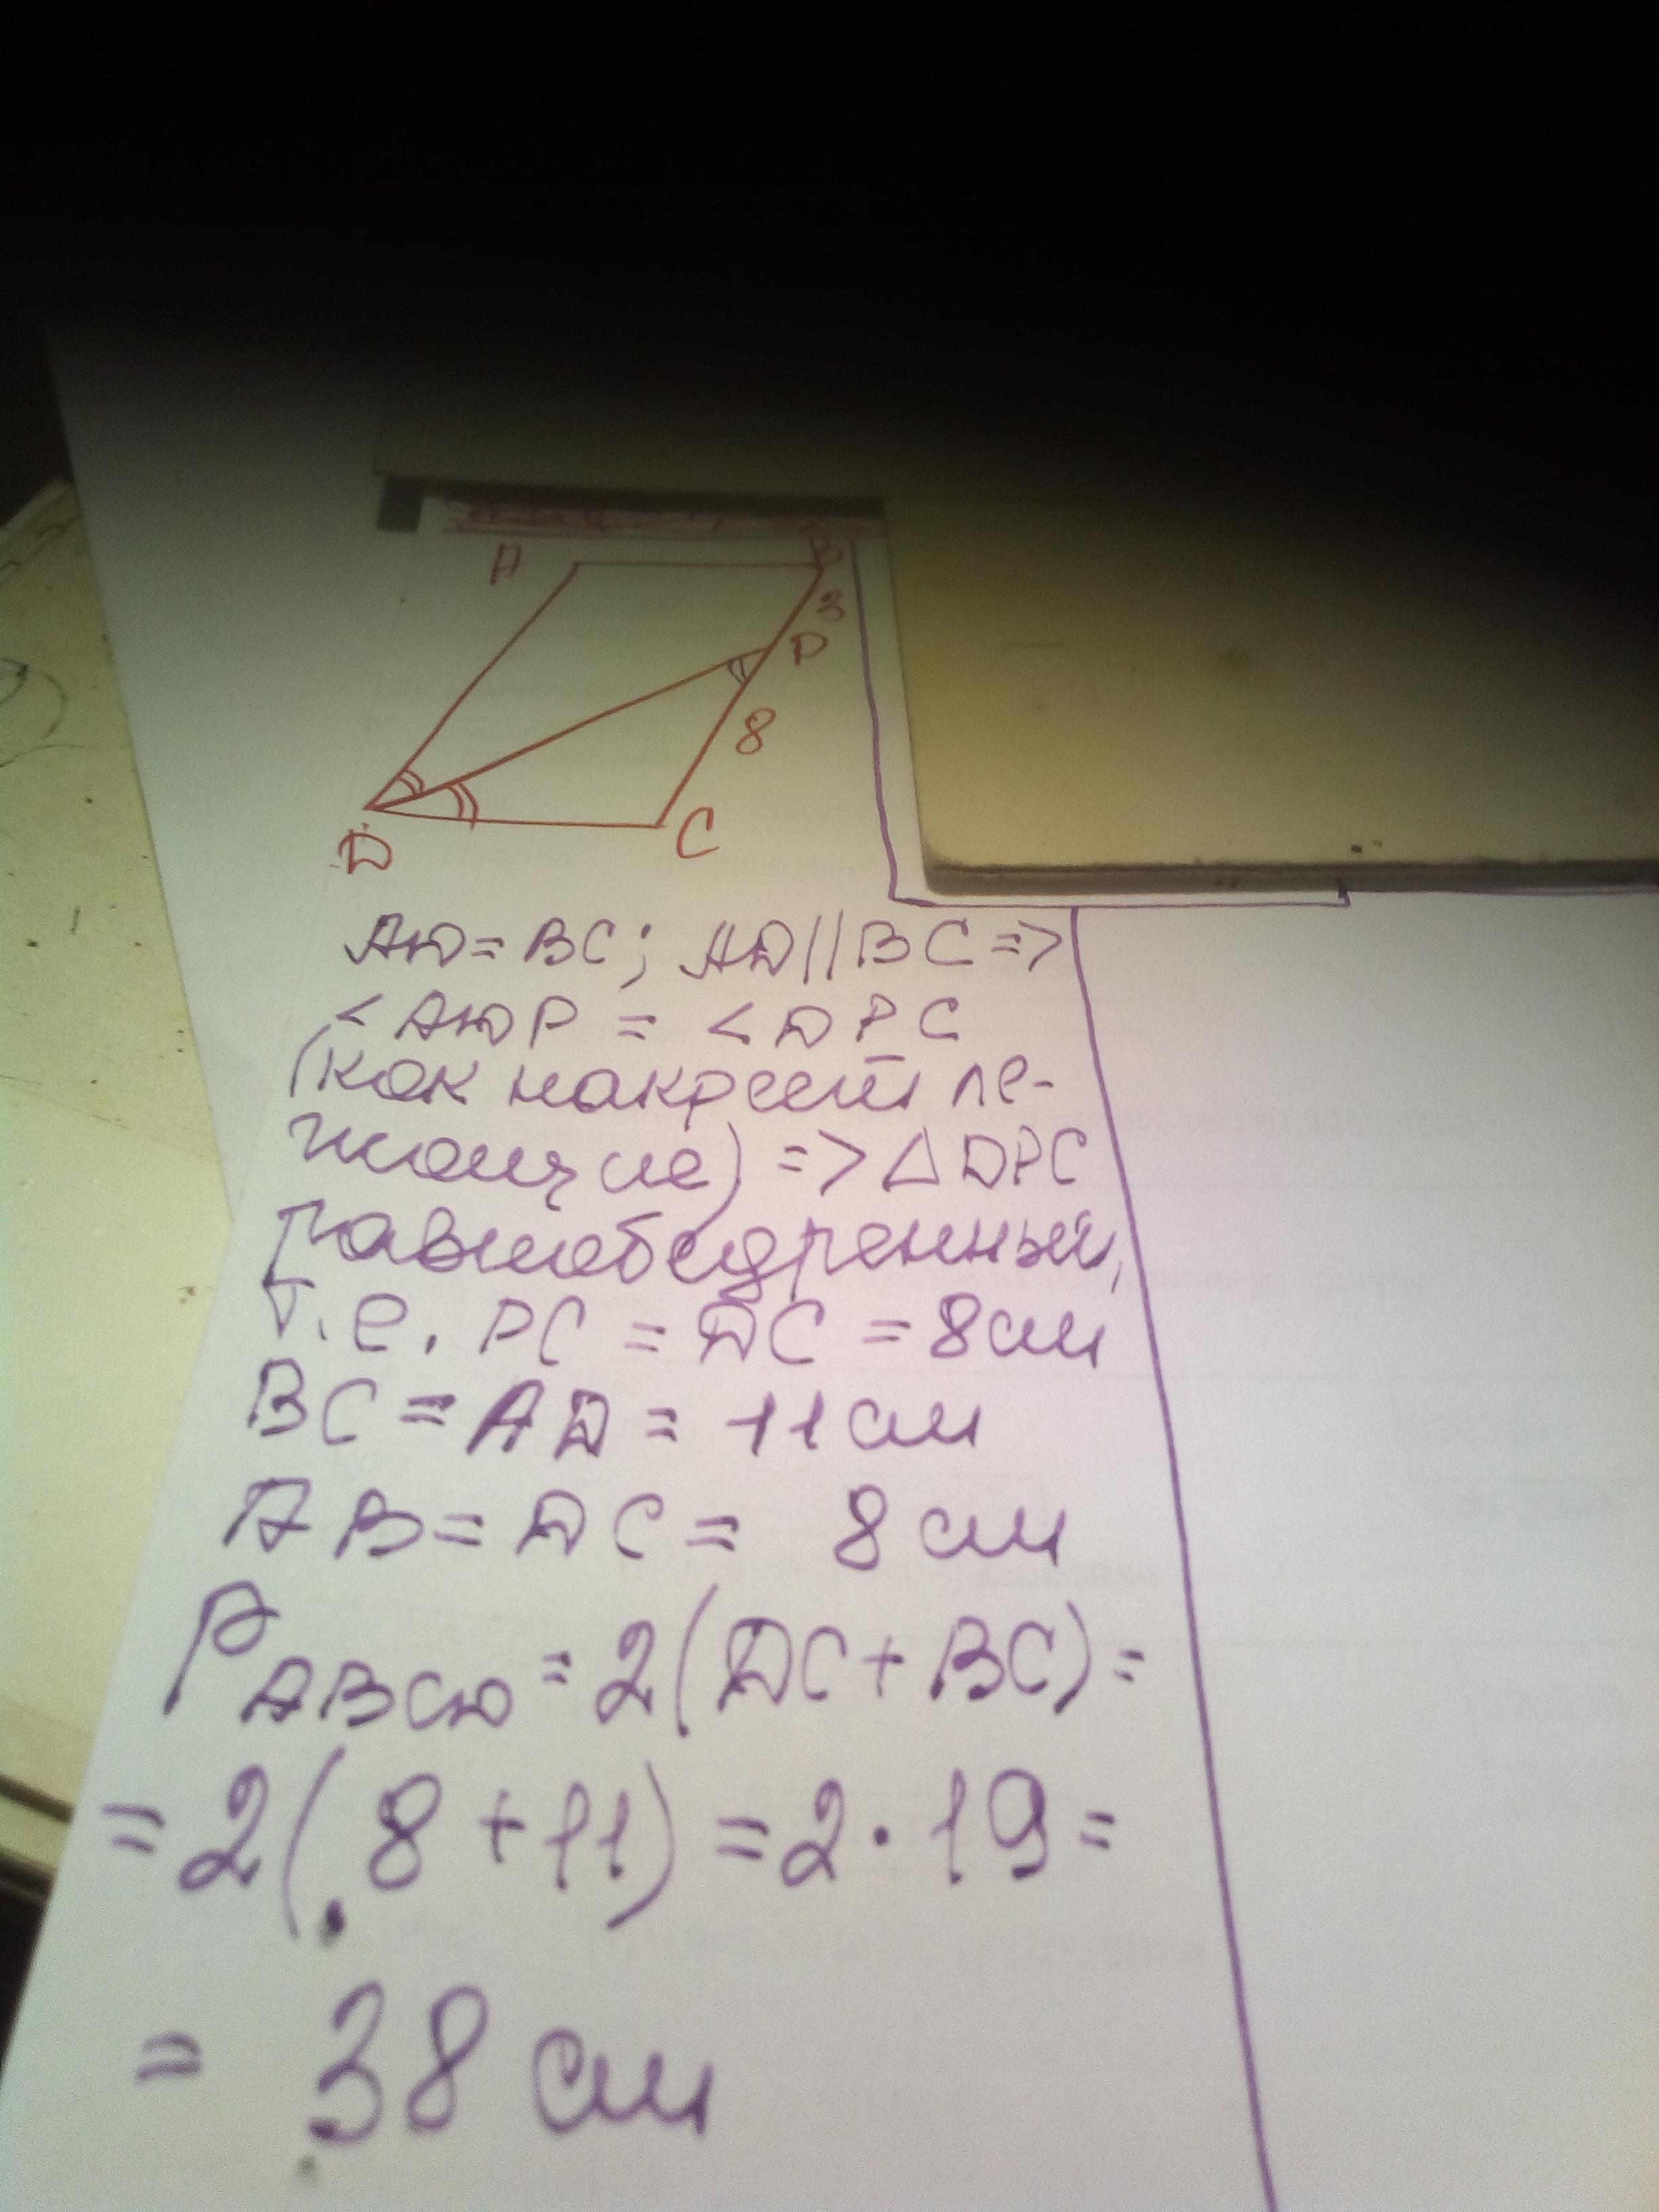 A
B
3
P
8
D
C
AD = BC; AD || BC =>
< ADP = < DPC
(как накрест ле-
жащие) => △ DPC
равнобедренный,
т.е. PC = DC = 8 см
BC = AD = 11 см
AB = DC = 8 см
P ABCD = 2(DC + BC) =
= 2(8 + 11) = 2 · 19 =
= 38 см